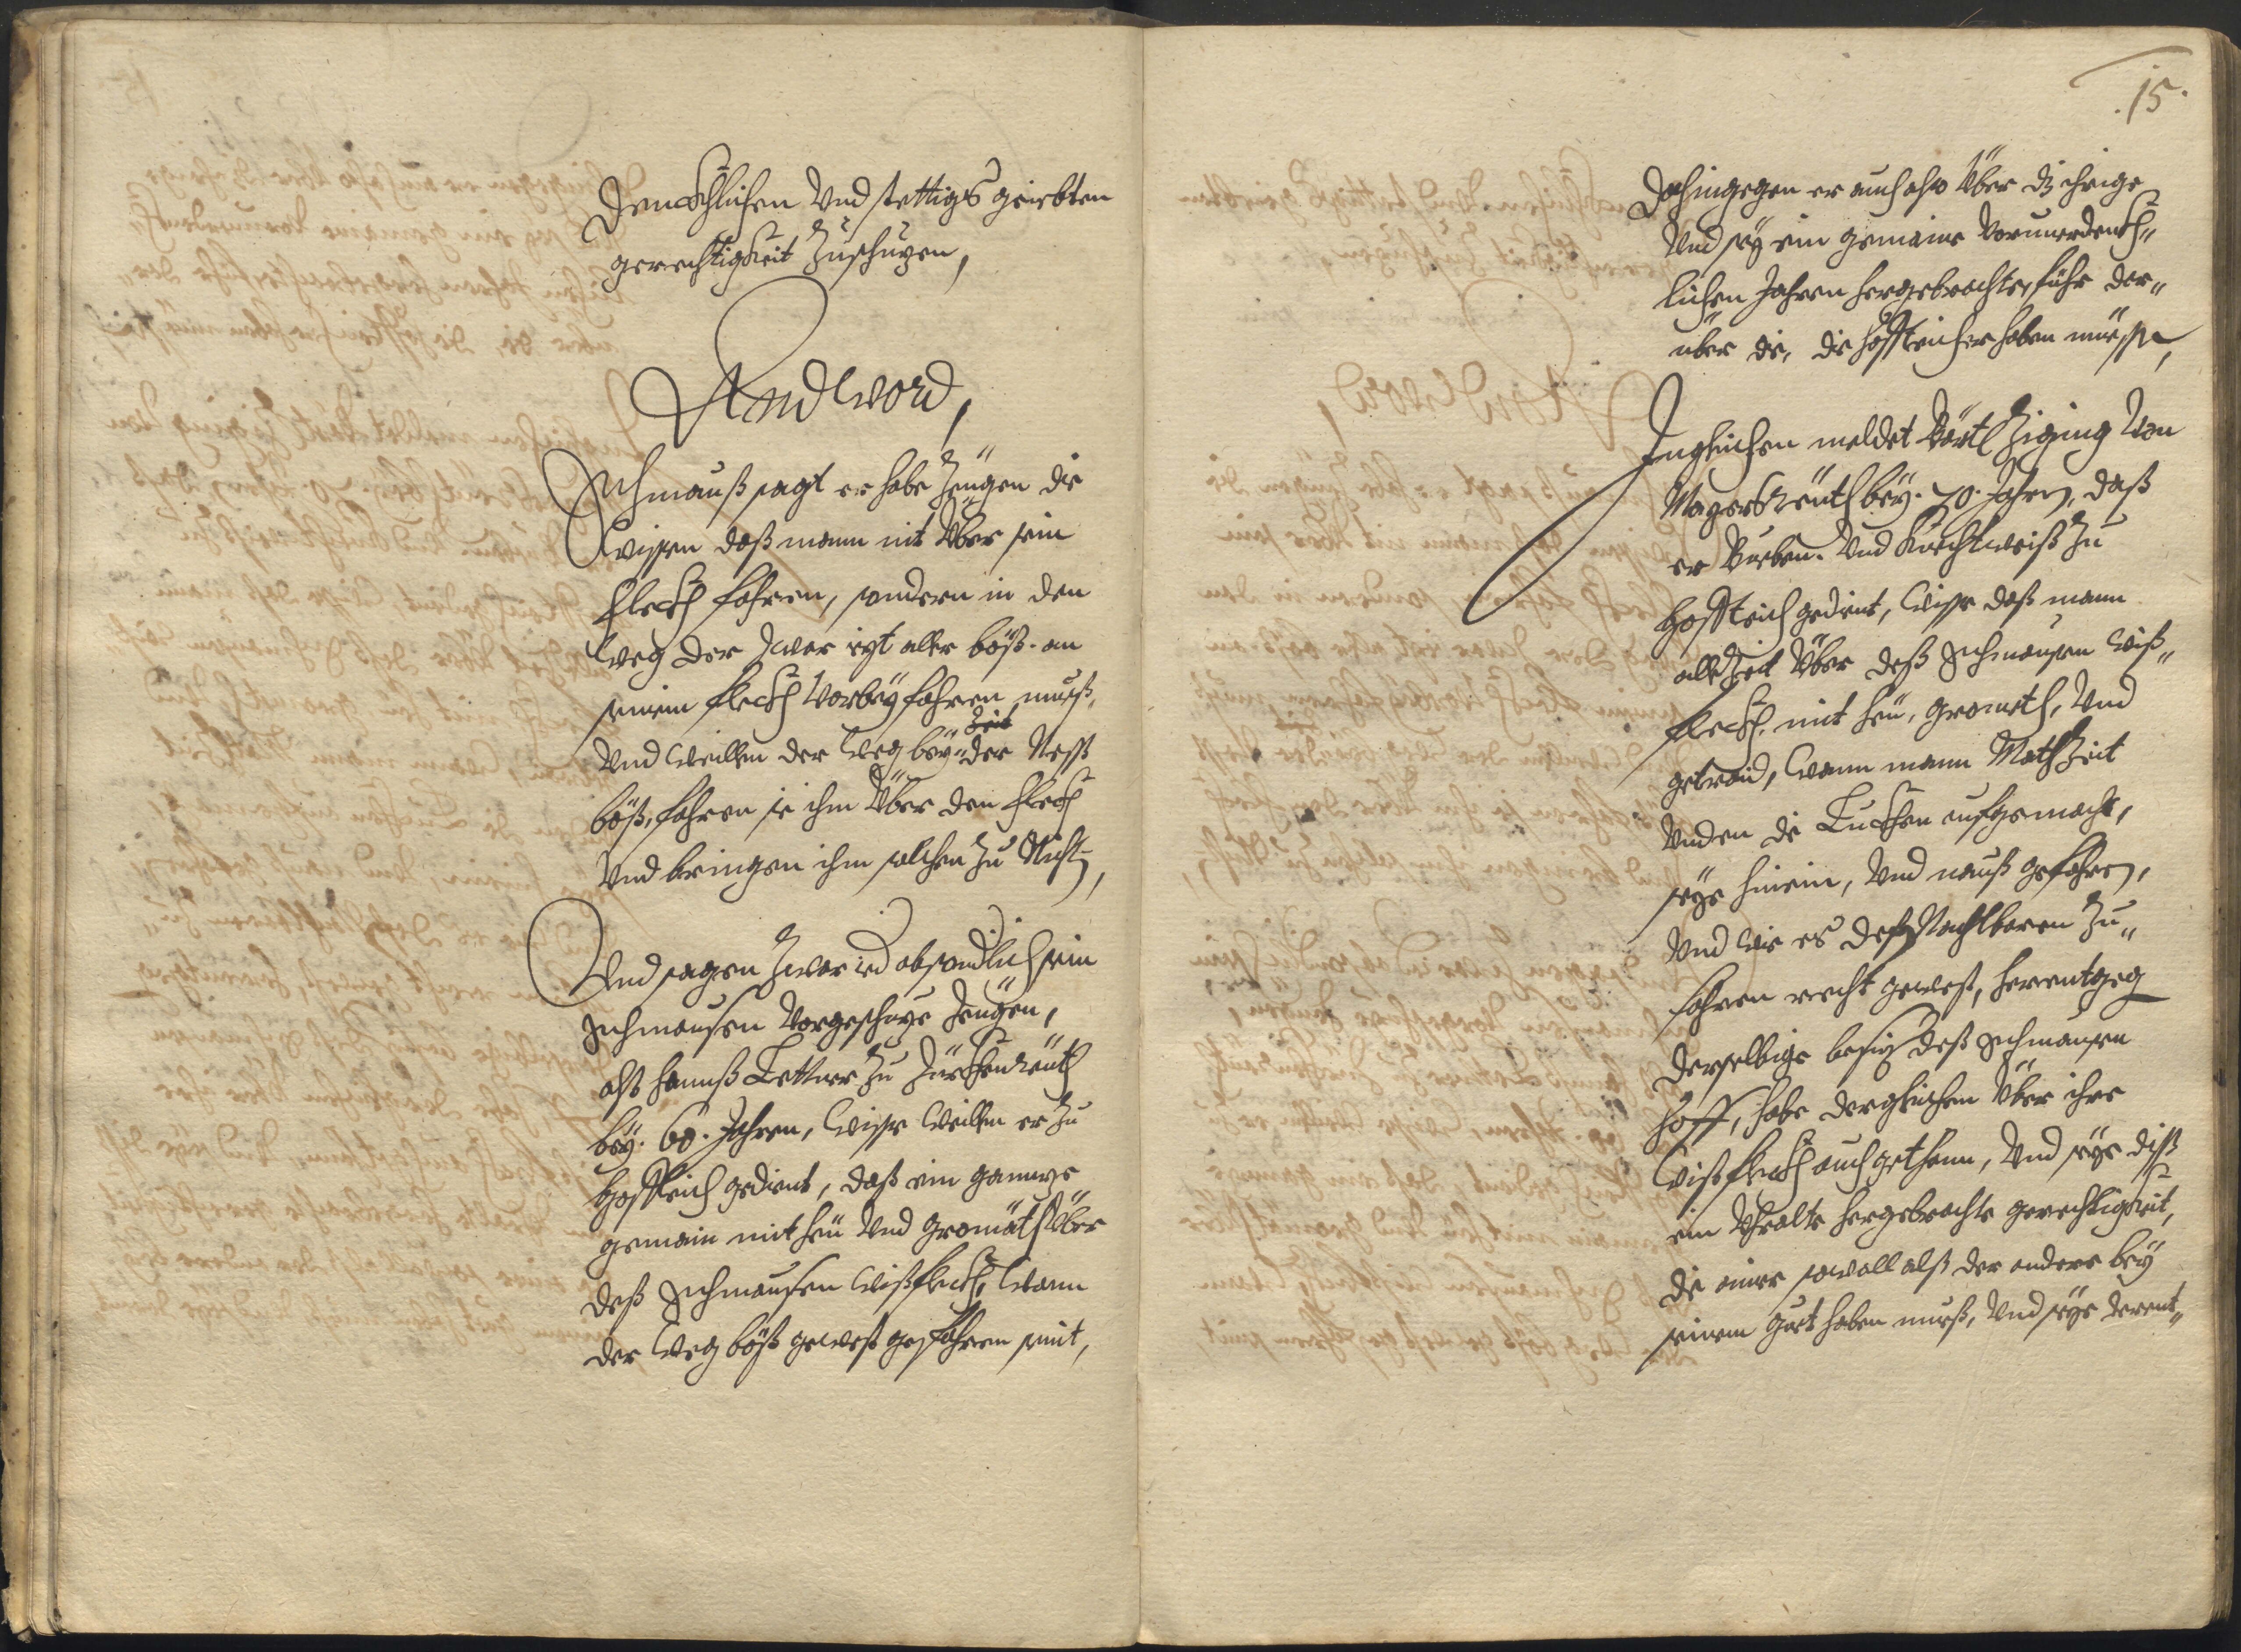 Dencklichen Und stettigs geiebten
gerechtigkeit Zuschuzen,
Andtword,
Schmauß sagt er habe Zeugen die
wissen daß mann nit Über sein
fleckh fahren, sondern in den
weeg der zwar iezt aller böß. an
seinem fleckh Vorbey fahren mueß,
Und weillen der weeg bey der Zeit Neß
böß, fahren sie ihm Über den fleckh
Und bringen ihm solchen Zu Nicht,
Und sagen Zwar absondlich sein
Schmaussen Vorgeschuzte Zeugen,
alß Hannß Lettner Zu Türschenreuth
bey. 60. Jahren, wisse weillen er Zu
Hoffteich gedient, daß ein gannze
gemain mit heu Und Gromath Über
deß Schmaussen wißfleckh, wann
der weeg böß gewest gefahren seint,
15.
Dahingegen er auch also Über dz ihrige
Und sey ein gemaine Vor unerdenkh„
lichen Jahren hergebrachte fuhr der„
über die, die Hoffteicher haben müessen,
Ingleichen meldet Bärtl Ziging Von
Magersreuth bey. 70. Jahren, daß
er Bueben. Und Knechtweiß Zu
Hoffteich gedient, wisse daß mann
alle Zeit Über deß Schmaussen wiß„
fleckh, mit heu, Gromath, Und
getraid, wann mann Math Zeit
Unden die Luckhen aufgemacht,
seye hinein, Und nauß gefahren,
Und wie es deß Nachtbaren Zu„
fahren recht gewest, herentgeg
derselbige besiz deß Schmaussen
Hoff, habe dergleichen Über ihre
wißfleckh auch gethann, Und seye diß
ein Uhralte hergebrachte gerechtigkeit,
die ainer sowoll alß der andere bey
seinem guet haben mueß, Und seye derent„